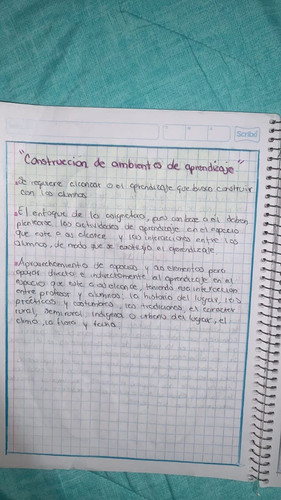 Scribe
"Construccion de ambientes de aprendizaje"
Se requiere alcanzar o el aprendizaje que busca construir
con los alumnos.
El enfoque de la asignatura, pues con base a el deben
plantearse las actividades de aprendizaje en el espacio
que este a su alcance y las interacciones entre los
alumnos, de modo que se construya el aprendizaje
Aprovechamiento de espacios y sus elementos para
apoyar directa e indirectamente el aprendizaje en el
espacio que este a su alcance, teniendo esa interaccion
entre profesor y alumnos, la historia del lugar, las
prácticas y costumbres, las tradiciones, el caracter
rural, semirural, indigena o urbano del lugar, el
clima, la flora y fauna.